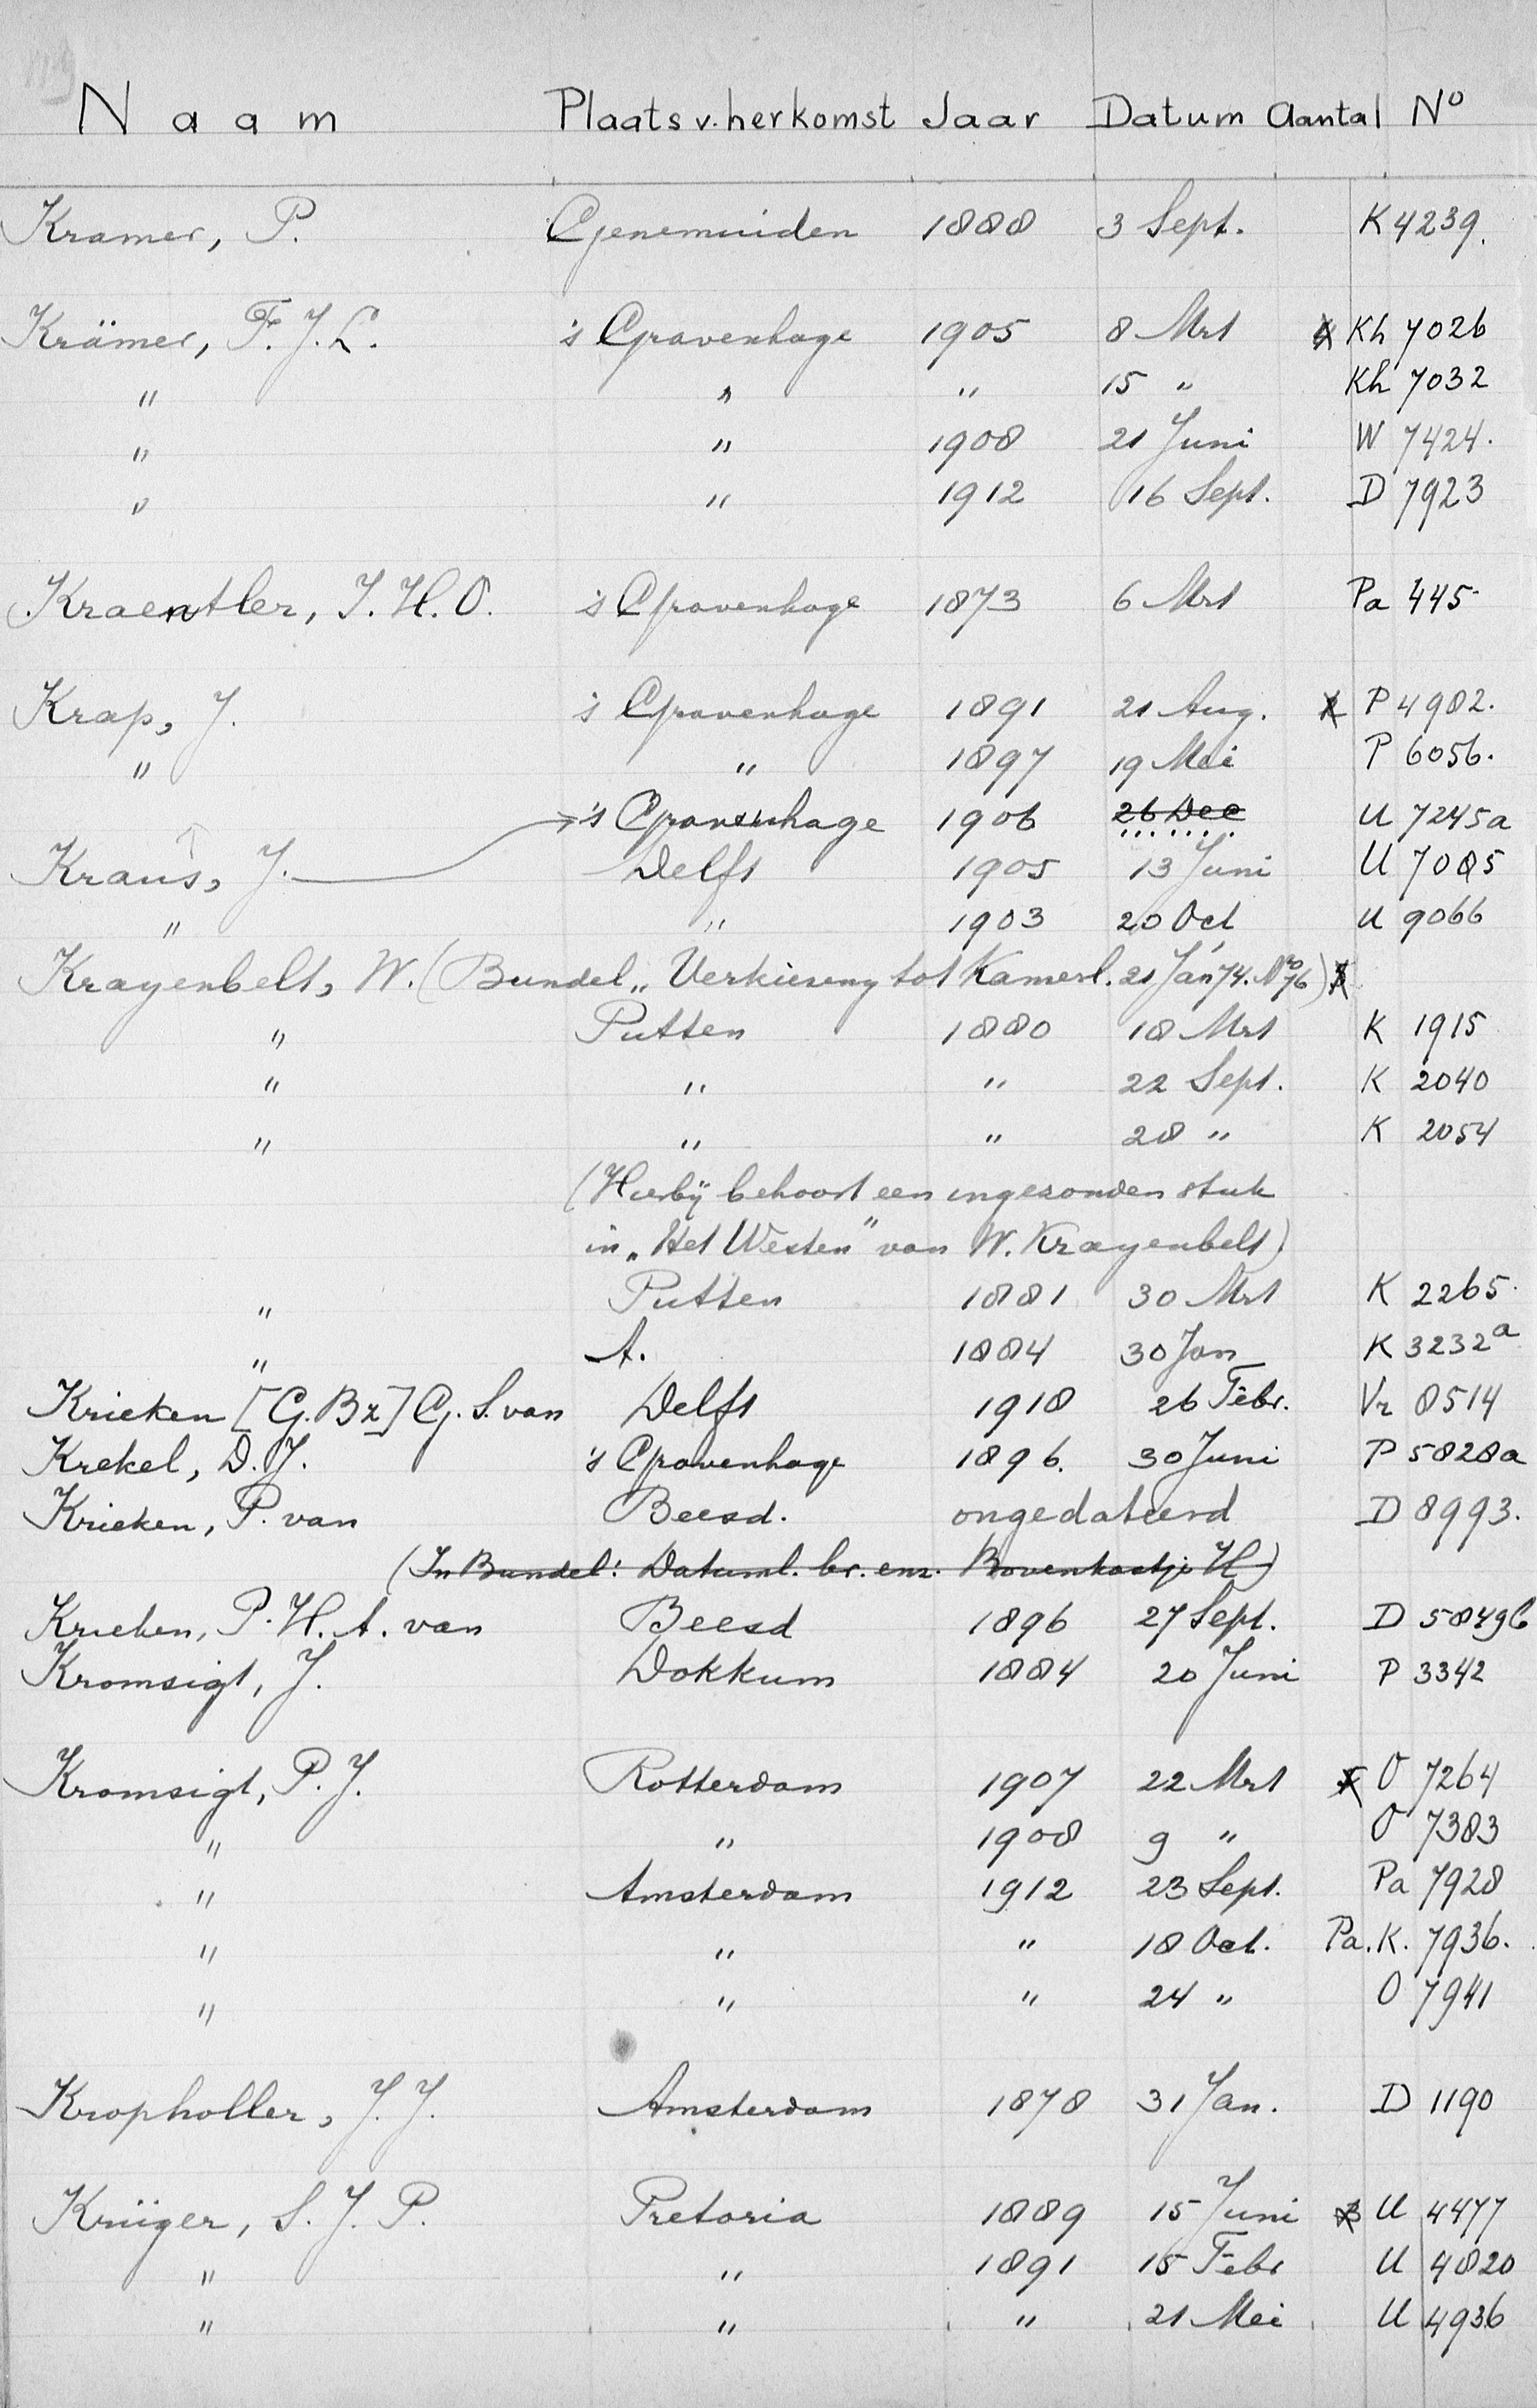 Naam Plaats v. herkomst Jaar Datum Aantal No
Kramer, P. Genemuiden 1888 3 Sept. K 4239.
Krämer, F. J. L. 's Gravenhage 1905 8 Mrt Kh 7026
" " " 15 " Kh 7032
" " 1908 21 Juni W 7424.
" " 1912 16 Sept. D 7923
Kraentler, J. H. O. 's Gravenhage 1873 6 Mrt Pa 445
Krap, J. 's Gravenhage 1891 21 Aug. P 4982.
" " 1897 19 Mei P 6056.
's Gravenhage 1906 26 Dec U 7245a
Kraus, J. Delft 1905 13 Juni U 7085
" " 1903 20 Oct U 9066
Krayenbelt, W. (Bundel „Verkiezing tot Kamerl. 21 Jan 74. No 76)
" Putten 1880 18 Mrt K 1915
" " " 22 Sept. K 2040
" " " 28 " K 2054
(Hierbij behoort een ingezonden stuk
in „Het Westen" van W. Krayenbelt)
" Putten 1881 30 Mrt K 2265.
" A. 1884 30 Jan K 3232a
Krieken [G. Bz] G. S. van Delft 1918 26 Febr. Vr 8514
Krekel, D. J. 's Gravenhage 1896. 30 Juni P 5828a
Krieken, P. van Beesd. ongedateerd D 8993.
(In Bundel: Datuml. br. enz. Bovenkastje H)
Krieken, P. H. A. van Beesd 1896 27 Sept. D 5849b
Kromsigt, J. Dokkum 1884 20 Juni P 3342
Kromsigt, P. J. Rotterdam 1907 22 Mrt O 7264
" " 1908 9 " O 7383
" Amsterdam 1912 23 Sept. Pa 7928
" " " 18 Oct. Pa. K. 7936.
" " " 24 " O 7941
Kropholler, J. J. Amsterdam 1878 31 Jan. D 1190
Krüger, S. J. P. Pretoria 1889 15 Juni U 4477
" " 1891 15 Febr U 4820
" " " 21 Mei U 4936